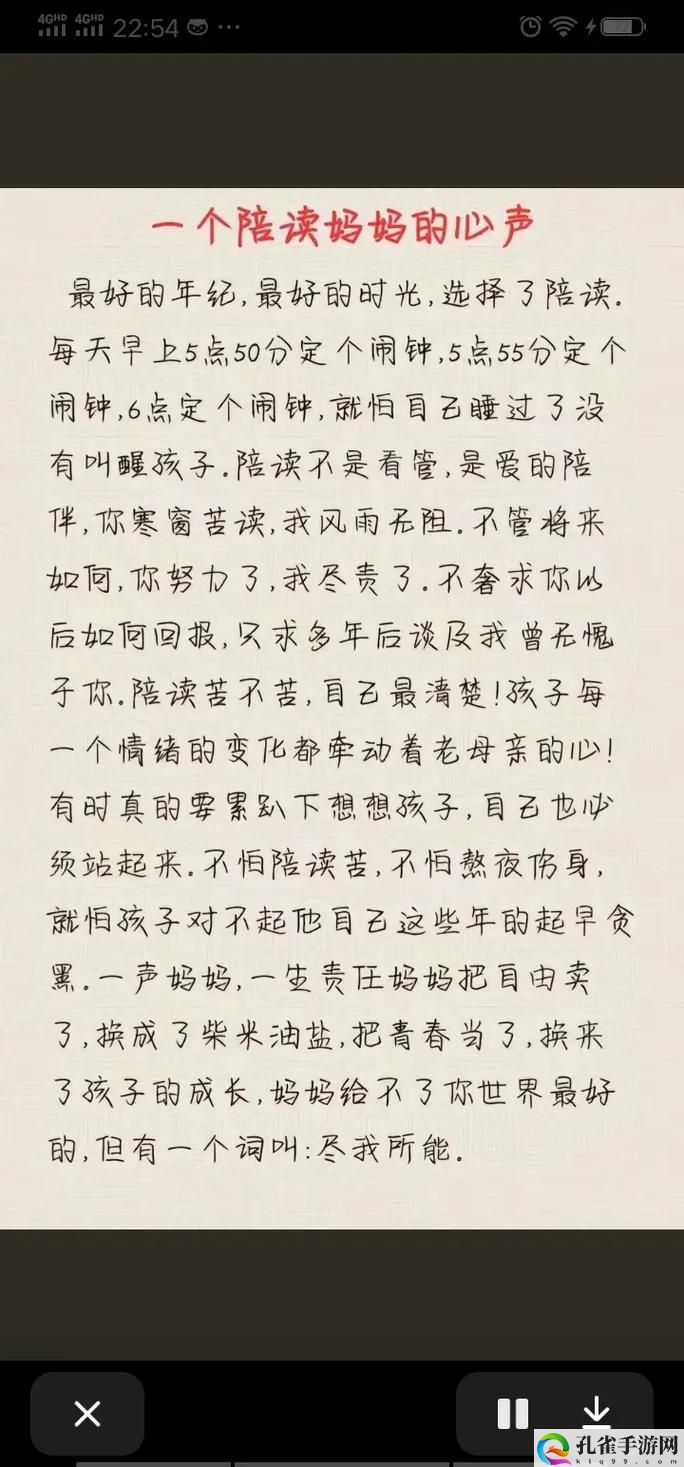 4GHD 4GHD 22:54 ...
一个陪读妈妈的心声
最好的年纪,最好的时光,选择了陪读.
每天早上5点50分定个闹钟,5点55分定个
闹钟,6点定个闹钟,就怕自己睡过了没
有叫醒孩子.陪读不是看管,是爱的陪
伴,你寒窗苦读,我风雨无阻.不管将来
如何,你努力了,我尽责了.不奢求你以
后如何回报,只求多年后谈及我曾无愧
于你.陪读苦不苦,自己最清楚!孩子每
一个情绪的变化都牵动着老母亲的心!
有时真的要累趴下想想孩子,自己也必
须站起来.不怕陪读苦,不怕熬夜伤身,
就怕孩子对不起他自己这些年的起早贪
黑.一声妈妈,一生责任妈妈把自由卖
了,换成了柴米油盐,把青春当了,换来
了孩子的成长,妈妈给不了你世界最好
的,但有一个词叫:尽我所能.
孔雀手游网
ktq99.com